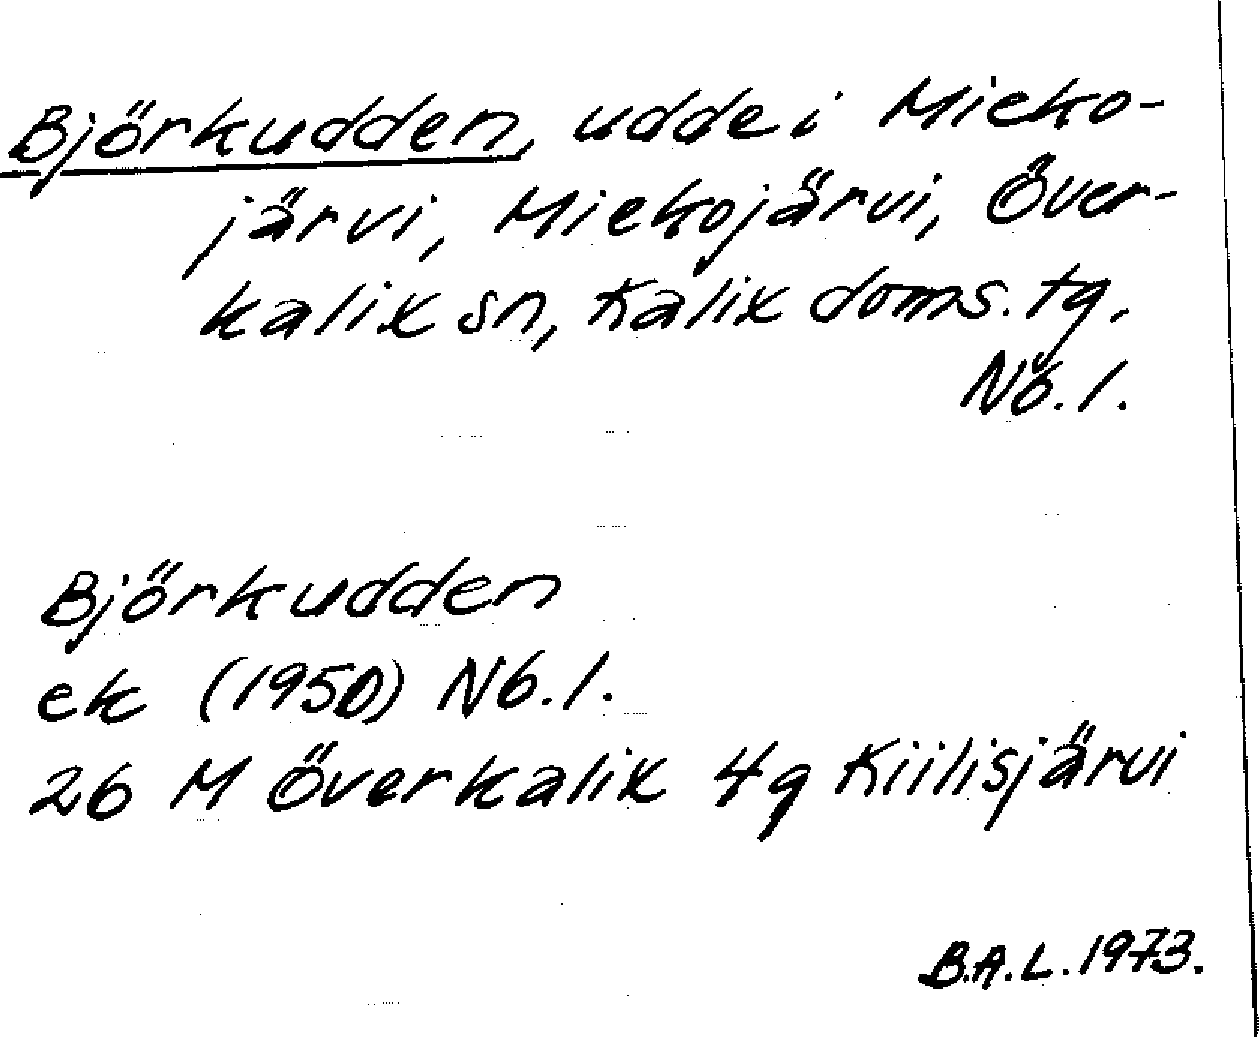 Björkudden, udde i Mieko-
järvi, Miekojärvi, Över-
kalix sn, Kalix doms. tg.
Nb. l.
Björkudden
ek (1950) Nb. l.
26 M Överkalix 4g Kiilisjärvi
B.A.L. 1973.